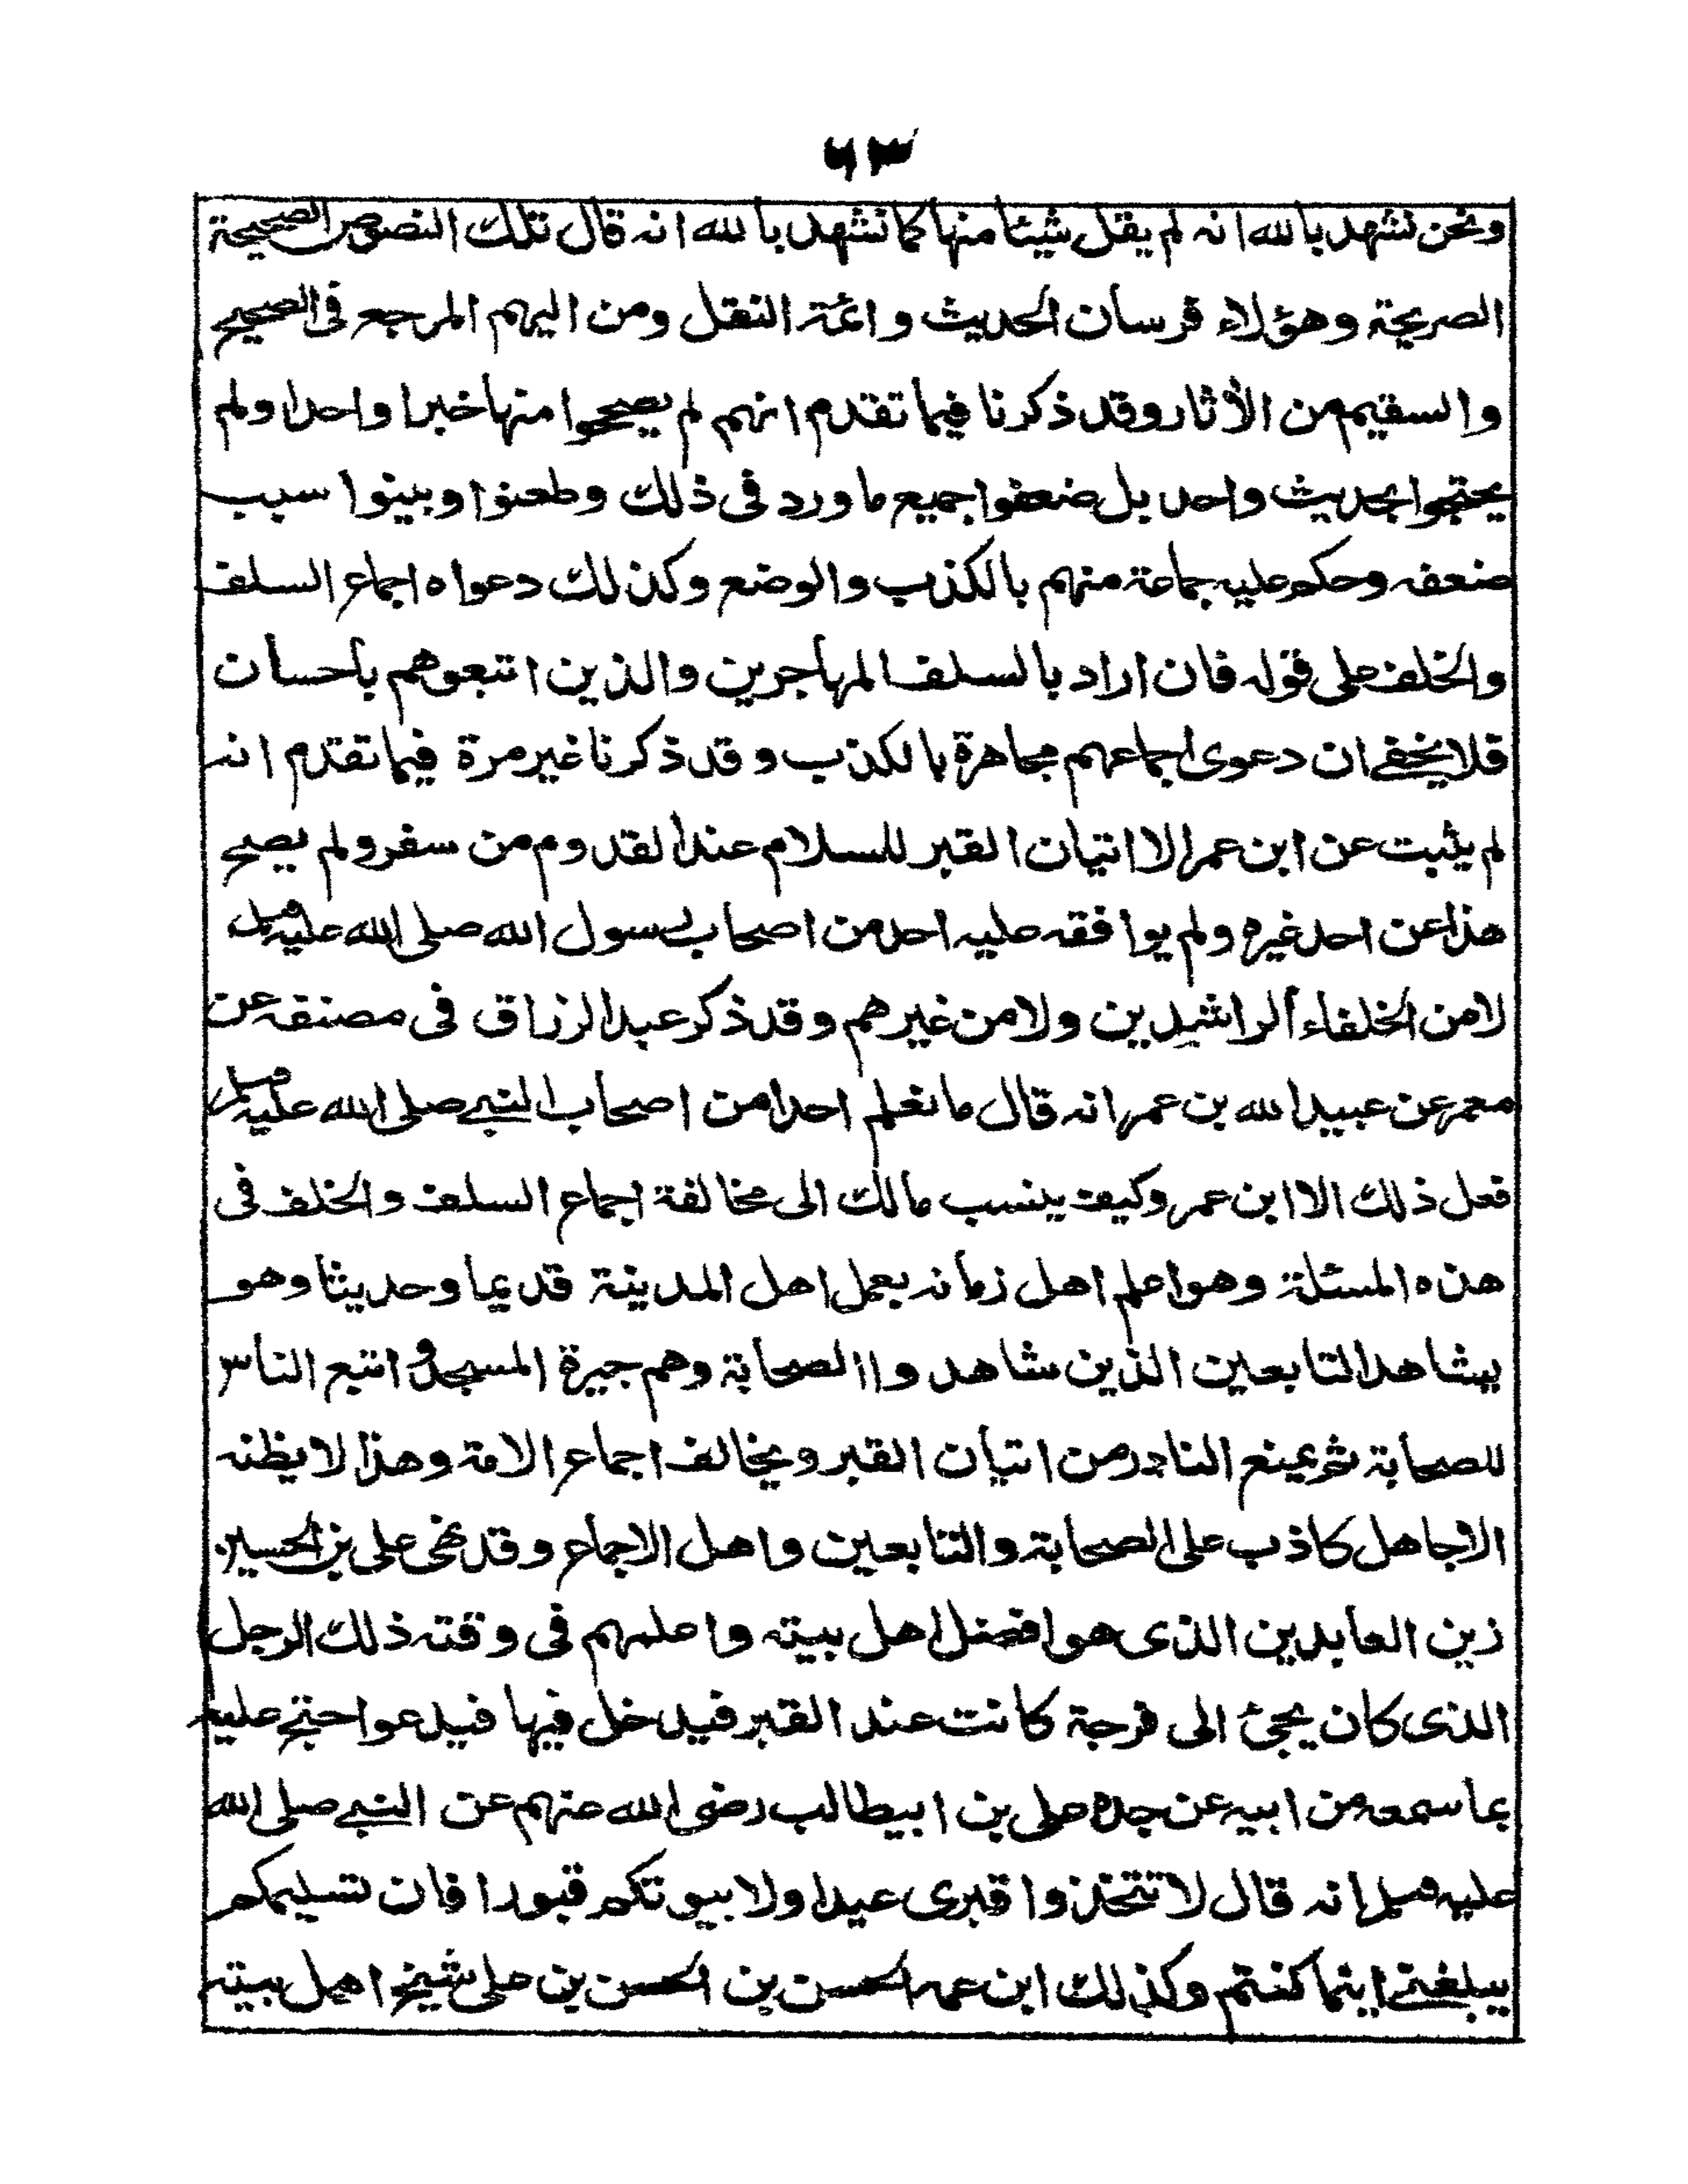 ٦٣
ونحن نشهد بالله انه لم يقل شيئا منها كما نشهد بالله انه قال تلك النصوص الصحيحة
الصريحة وهؤلاء فرسان الحديث وائمة النقل ومن اليهم المرجع فى الصحيح
والسقيم من الأثار وقد ذكرنا فيما تقدم انهم لم يصححوا منها خبرا واحدا ولم
يحتجوا بحديث واحد بل ضعفوا جميع ما ورد فى ذلك وطعنوا وبينوا سبب
ضعفه وحكم عليه جماعة منهم بالكذب والوضع وكذلك دعواه اجماع السلف
والخلف على قوله فان اراد بالسلف المهاجرين والذين اتبعوهم باحسان
فلا يخفى ان دعوى اجماعهم مجاهرة بالكذب وقد ذكرنا غير مرة فيما تقدم انه
لم يثبت عن ابن عمر الا اتيان القبر للسلام عند القدوم من سفر ولم يصح
هذا عن احد غيره ولم يوافقه عليه احد من اصحاب رسول الله صلى الله عليه وسلم
لا من الخلفاء الراشدين ولا من غيرهم وقد ذكر عبد الرزاق فى مصنفه عن
معمر عن عبيد الله بن عمر انه قال ما نعلم احدا من اصحاب النبي صلى الله عليه وسلم
فعل ذلك الا ابن عمر وكيف ينسب مالك الى مخالفة اجماع السلف والخلف فى
هذه المسئلة وهو اعلم اهل زمانه بعمل اهل المدينة قديما وحديثا وهو
يشاهد التابعين الذين شاهدوا الصحابة وهم جيرة المسجد واتبع الناس
للصحابة ثم يمنع الناذر من اتيان القبر ويخالف اجماع الامة وهذا لا يظنه
الا جاهل كاذب على الصحابة والتابعين واهل الاجماع وقد نهى على بن الحسين
زين العابدين الذى هو افضل اهل بيته واعلمهم فى وقته ذلك الرجل
الذى كان يجئ الى فرجة كانت عند القبر فيدخل فيها فيدعو واحتج عليه
بما سمعه من ابيه عن جده على بن ابيطالب رضى الله عنهم عن النبي صلى الله
عليه وسلم انه قال لا تتخذوا قبرى عيدا ولا بيوتكم قبورا فان تسليمكم
يبلغنى اينما كنتم وكذلك ابن عمه الحسن بن الحسن بن على شيخ اهل بيته